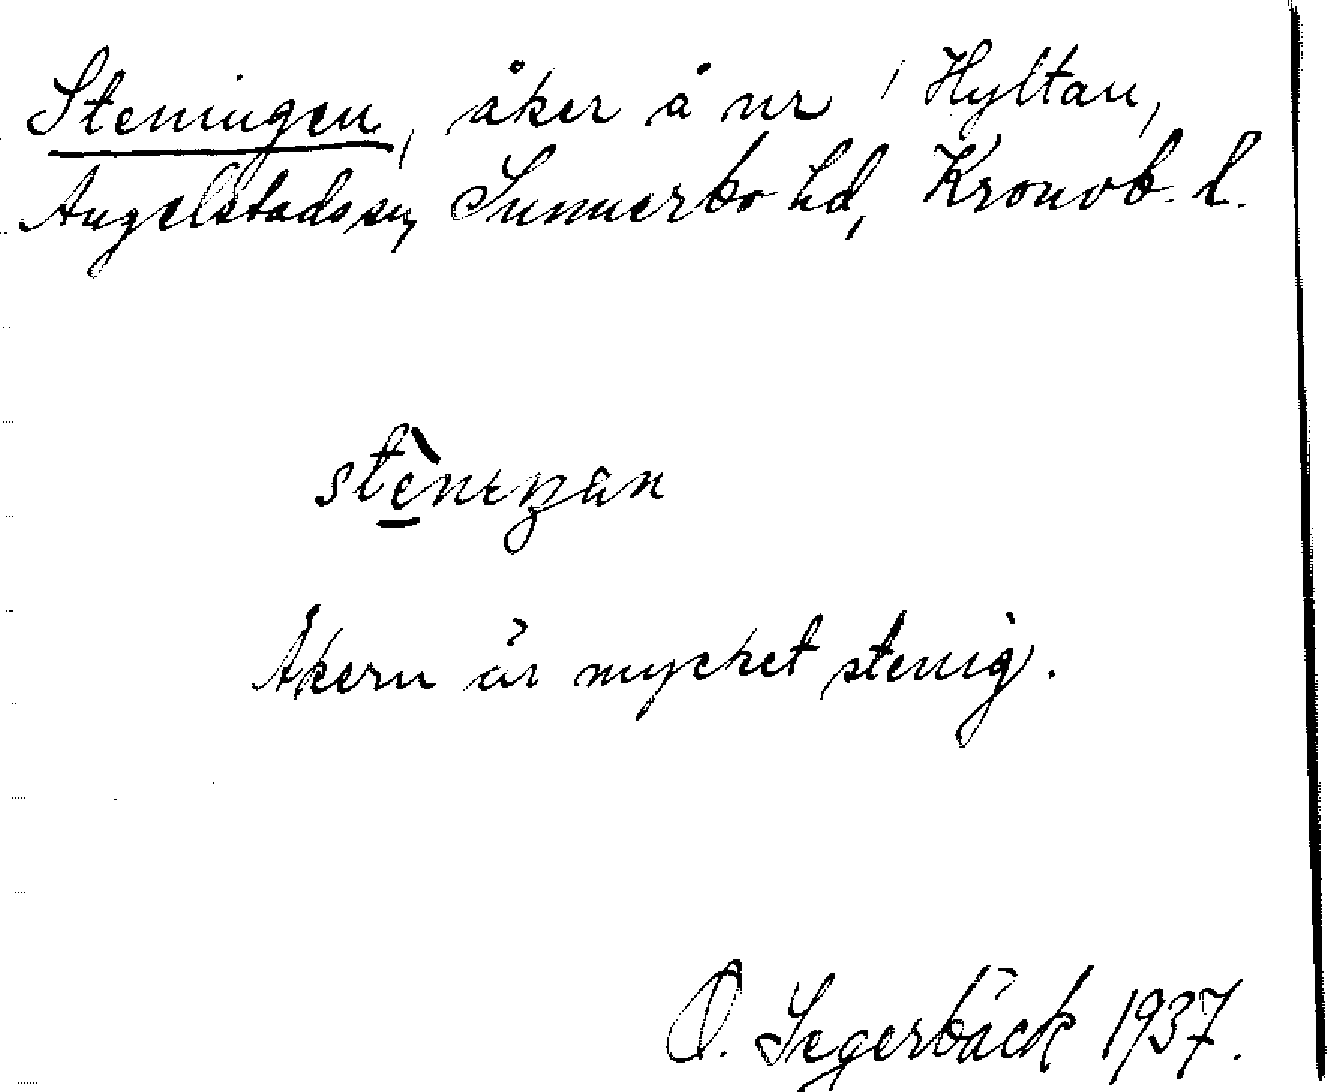 Steningen, åker å nr 1 Hyltan,
Angelstads sn, Sunnerbo hd, Kronob. l.
Åkern är mycket stenig.
O. Segerbäck 1937.